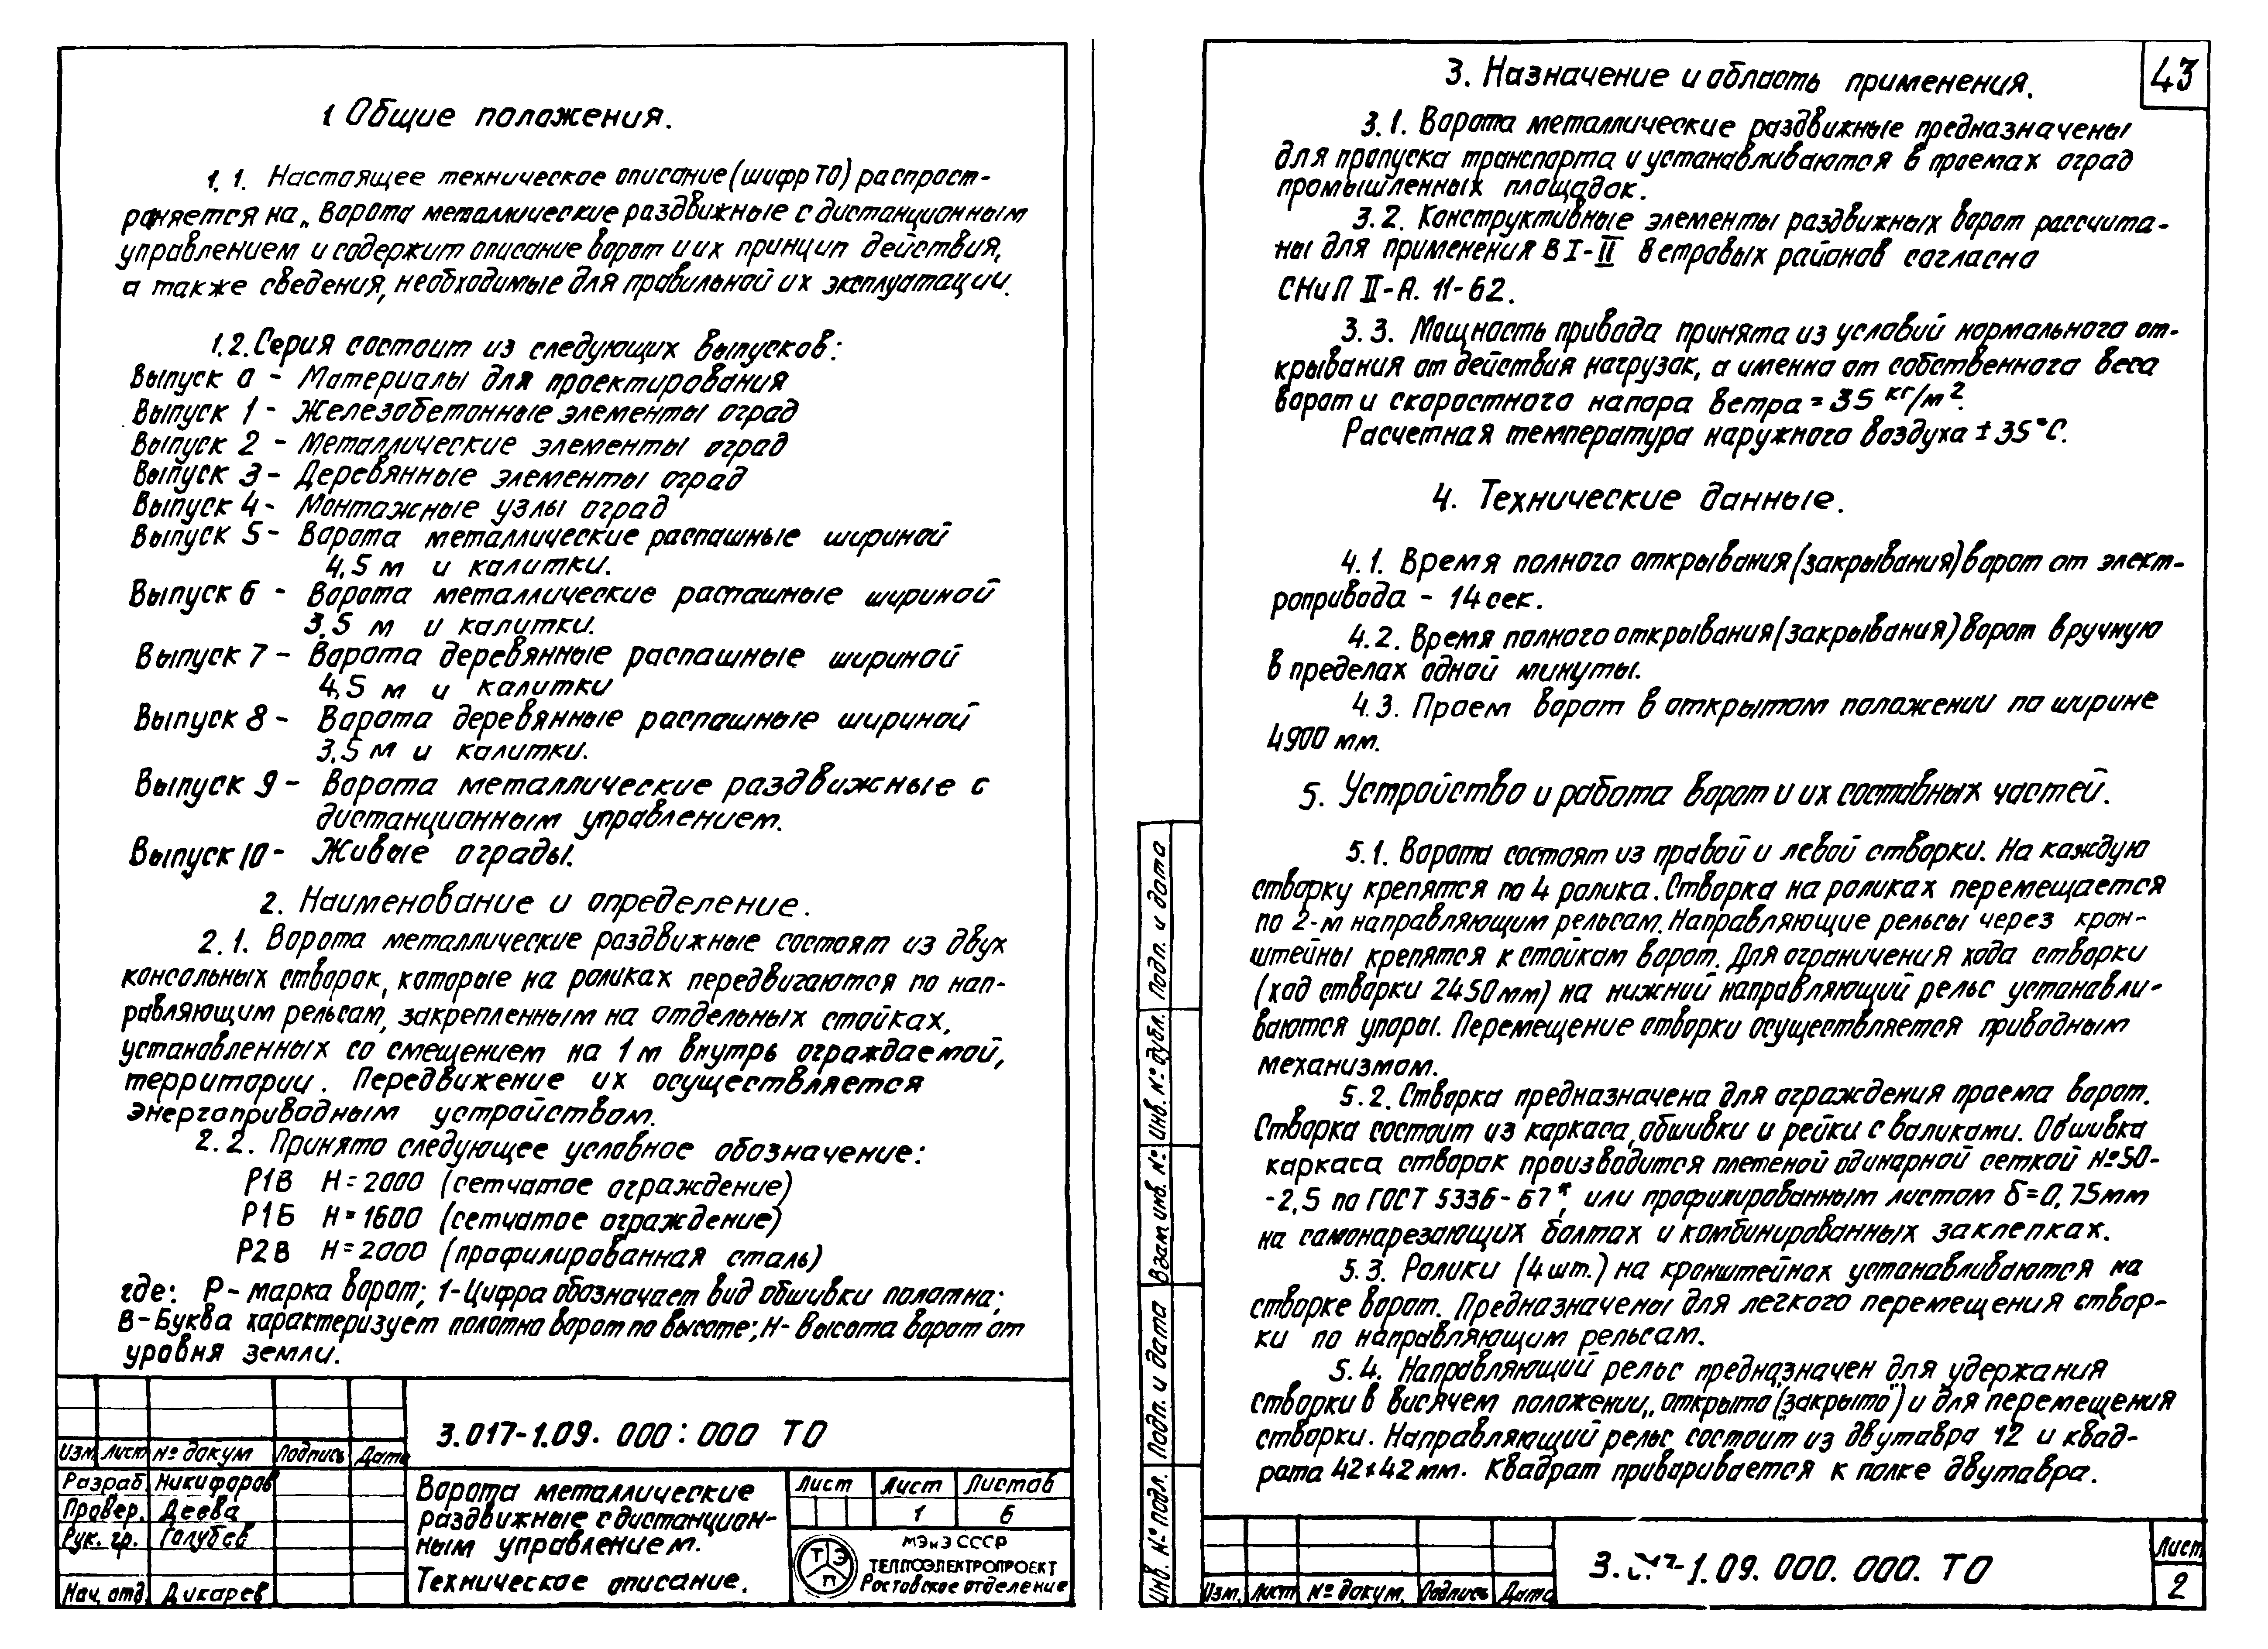 1 Общие положения.
1.1. Настоящее техническое описание (шифр ТО) распрост-
раняется на „Ворота металлические раздвижные с дистанционным
управлением и содержит описание ворот и их принцип действия,
а также сведения, необходимые для правильной их эксплуатации.
1.2. Серия состоит из следующих выпусков:
Выпуск 0 - Материалы для проектирования
Выпуск 1 - Железобетонные элементы оград
Выпуск 2 - Металлические элементы оград
Выпуск 3 - Деревянные элементы оград
Выпуск 4 - Монтажные узлы оград
Выпуск 5 - Ворота металлические распашные шириной
4,5 м и калитки.
Выпуск 6 - Ворота металлические распашные шириной
3,5 м и калитки.
Выпуск 7 - Ворота деревянные распашные шириной
4,5 м и калитки
Выпуск 8 - Ворота деревянные распашные шириной
3,5 м и калитки.
Выпуск 9 - Ворота металлические раздвижные с
дистанционным управлением.
Выпуск 10 - Живые ограды.
2. Наименование и определение.
2.1. Ворота металлические раздвижные состоят из двух
консольных створок, которые на роликах передвигаются по нап-
равляющим рельсам, закрепленным на отдельных стойках,
установленных со смещением на 1 м внутрь ограждаемой,
территории. Передвижение их осуществляется
энергоприводным устройством.
2.2. Принято следующее условное обозначение:
Р1В Н=2000 (сетчатое ограждение)
Р1Б Н=1600 (сетчатое ограждение)
Р2В Н=2000 (профилированная сталь)
где: Р - марка ворот; 1-Цифра обозначает вид обшивки полотна;
В - Буква характеризует полотно ворот по высоте; Н - высота ворот от
уровня земли.
3.017-1.09. 000:000 ТО
Изм. Лист № докум Подпись Дата
Разраб Никифоров
Провер. Деева
Рук. гр. Голубев
Нач. отд. Дикарев
Ворота металлические
раздвижные с дистанцион-
ным управлением.
Техническое описание.
Лист Лист Листов
1 6
ТЭП
МЭиЭ СССР
ТЕПЛОЭЛЕКТРОПРОЕКТ
Ростовское отделение
43
3. Назначение и область применения.
3.1. Ворота металлические раздвижные предназначены
для пропуска транспорта и устанавливаются в проемах оград
промышленных площадок.
3.2. Конструктивные элементы раздвижных ворот рассчита-
ны для применения в I-II ветровых районов согласно
СНиП II-А. 11-62.
3.3. Мощность привода принята из условий нормального от-
крывания от действия нагрузок, а именно от собственного веса
ворот и скоростного напора ветра = 35 кг/м².
Расчетная температура наружного воздуха ± 35°С.
4. Технические данные.
4.1. Время полного открывания (закрывания) ворот от элект-
ропривода - 14 сек.
4.2. Время полного открывания (закрывания) ворот вручную
в пределах одной минуты.
4.3. Проем ворот в открытом положении по ширине
4900 мм.
5. Устройство и работа ворот и их составных частей.
5.1. Ворота состоят из правой и левой створки. На каждую
створку крепятся по 4 ролика. Створка на роликах перемещается
по 2-м направляющим рельсам. Направляющие рельсы через крон-
штейны крепятся к стойкам ворот. Для ограничения хода створки
(ход створки 2450 мм) на нижний направляющий рельс устанавли-
ваются упоры. Перемещение створки осуществляется приводным
механизмом.
5.2. Створка предназначена для ограждения проема ворот.
Створка состоит из каркаса, обшивки и рейки с валиками. Обшивка
каркаса створок производится плетеной одинарной сеткой №50-
-2,5 по ГОСТ 5336-67*, или профилированным листом δ=0,75мм
на самонарезающих болтах и комбинированных заклепках.
5.3. Ролики (4 шт.) на кронштейнах устанавливаются на
створке ворот. Предназначены для легкого перемещения створ-
ки по направляющим рельсам.
5.4. Направляющий рельс предназначен для удержания
створки в висячем положении „открыто („закрыто") и для перемещения
створки. Направляющий рельс состоит из двутавра 12 и квад-
рата 42×42 мм. Квадрат приваривается к полке двутавра.
Инв. № подл. Подп. и дата Взам. инв. № Инв. № дубл. Подп. и дата
Изм. Лист № докум. Подпись Дата
3.017-1.09. 000. 000. ТО
Лист
2